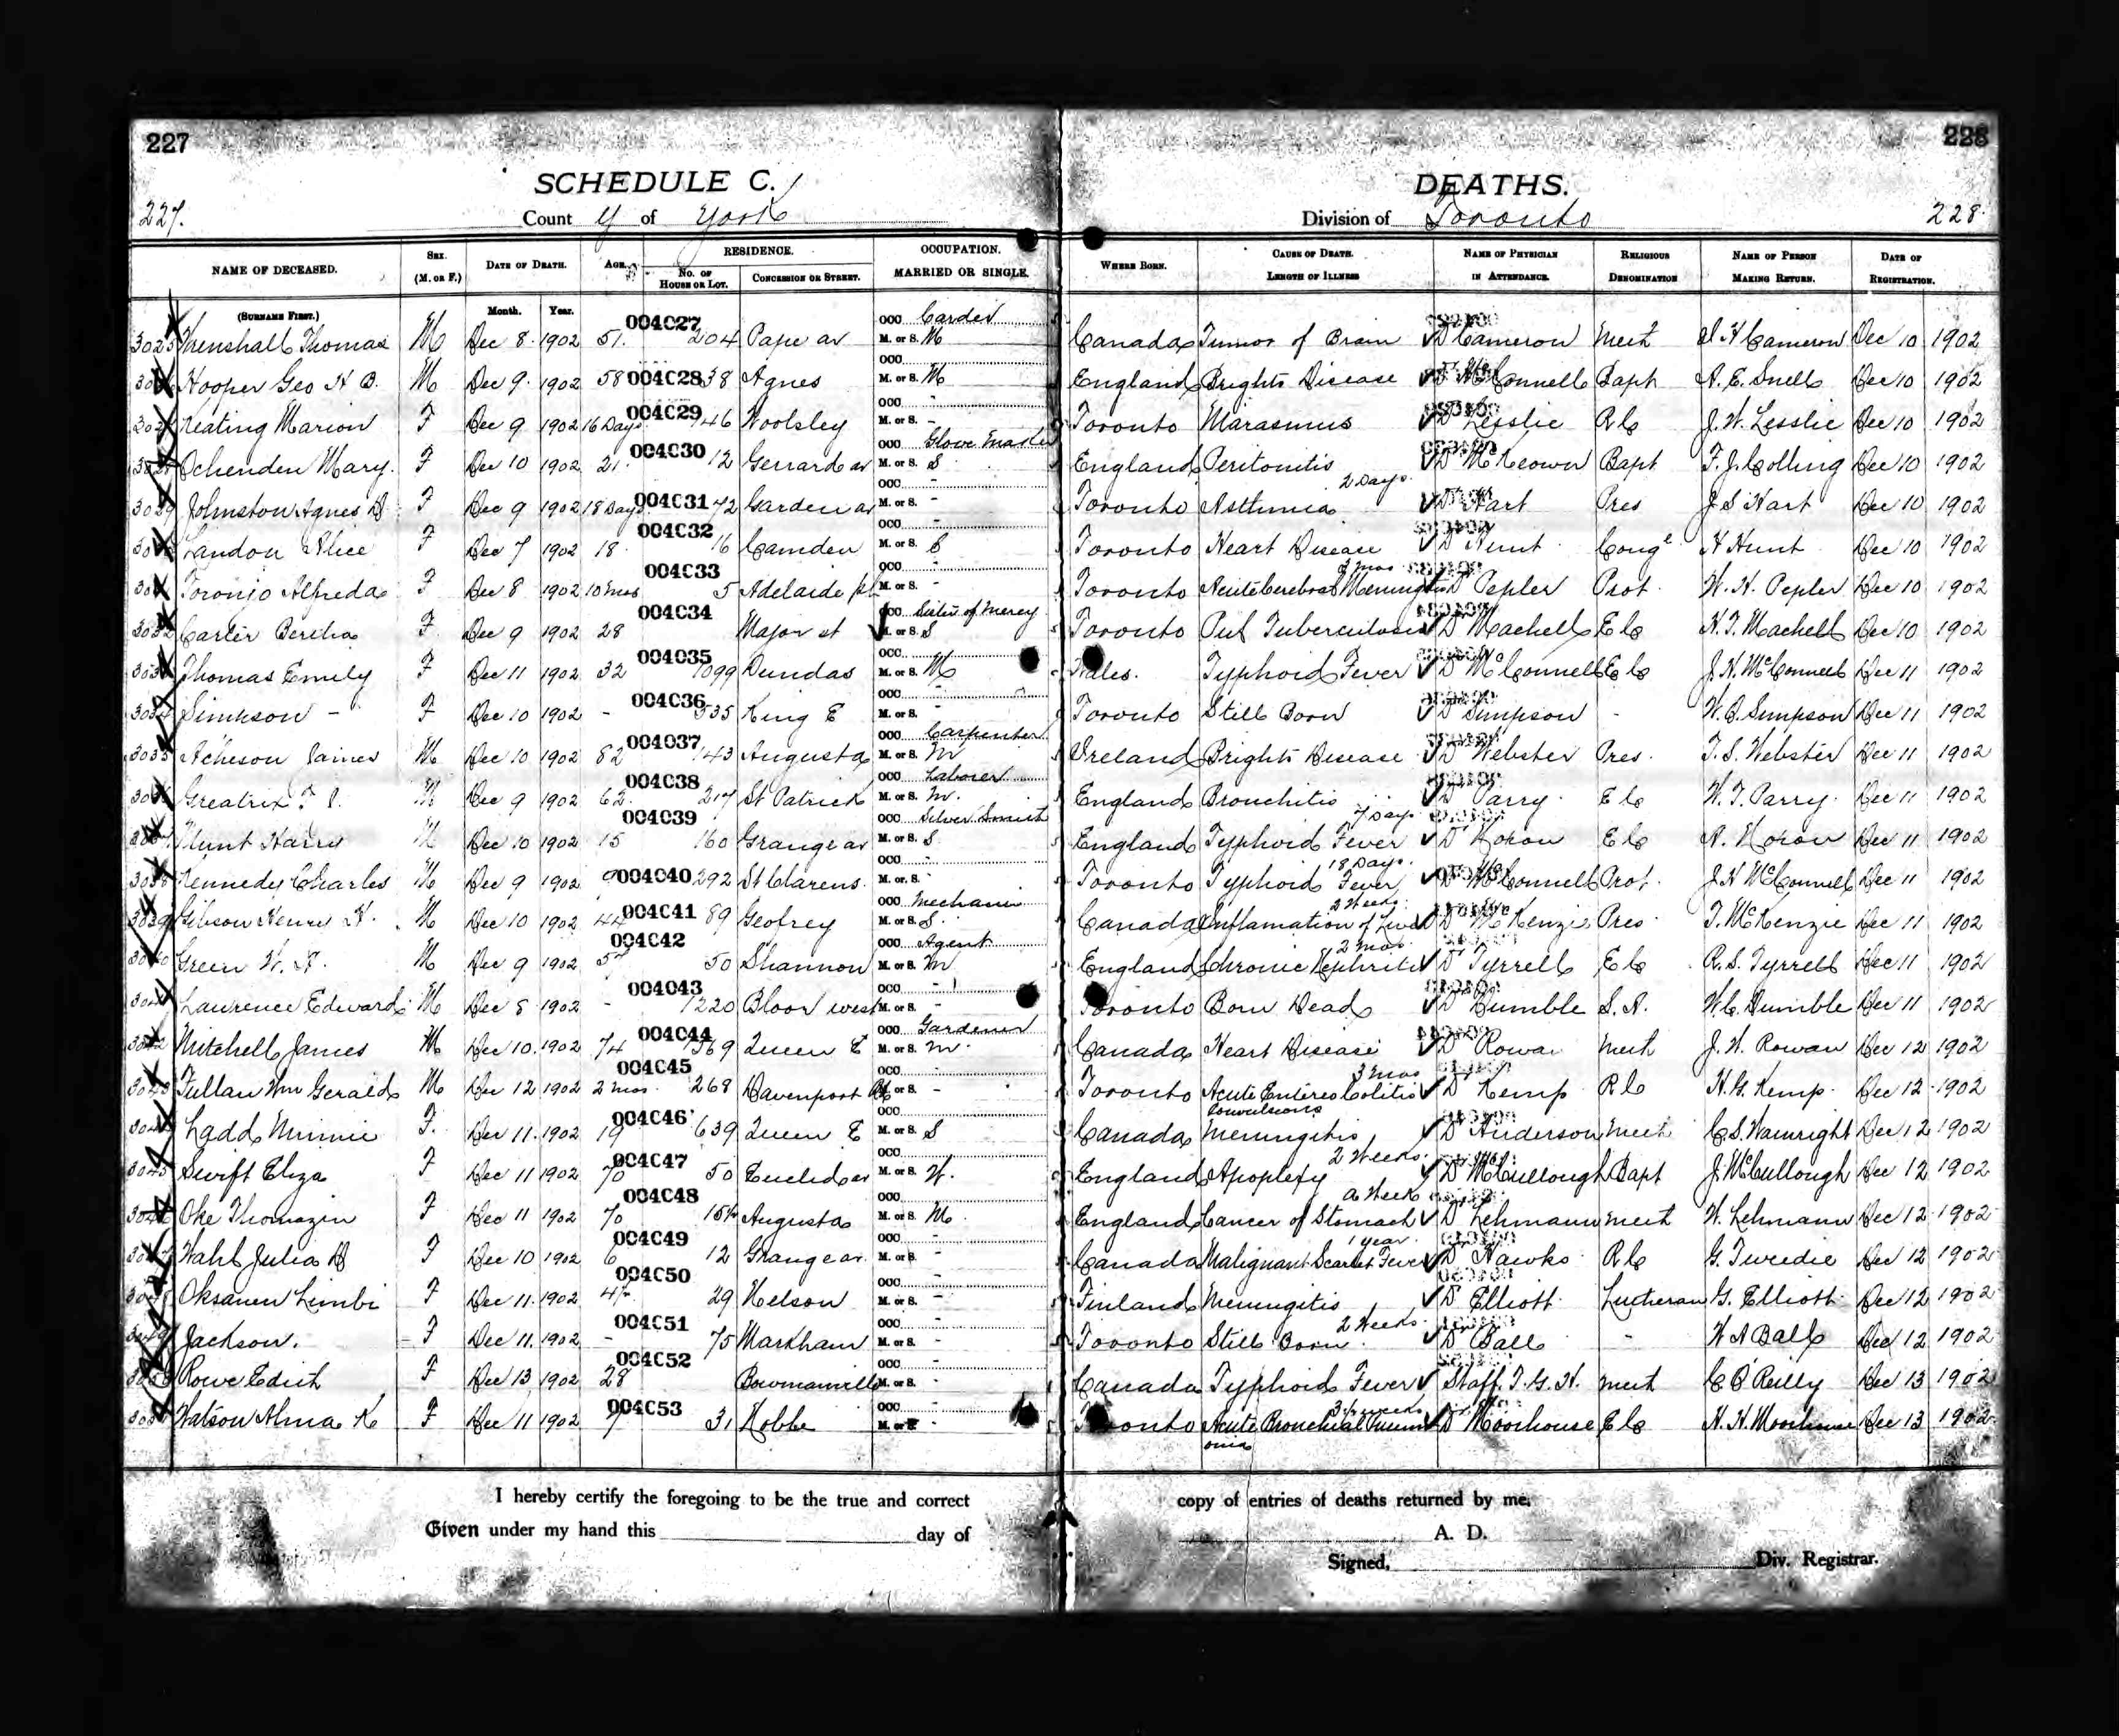 227 228
SCHEDULE C. DEATHS.
227. County of York Division of Toronto 228.
NAME OF DECEASED. SEX. (M. OR F.) DATE OF DEATH. AGE. RESIDENCE. NO. OF HOUSE OR LOT. CONCESSION OR STREET. OCCUPATION. MARRIED OR SINGLE. WHERE BORN. CAUSE OF DEATH. LENGTH OF ILLNESS NAME OF PHYSICIAN IN ATTENDANCE. RELIGIOUS DENOMINATION NAME OF PERSON MAKING RETURN. DATE OF REGISTRATION.
(SURNAME FIRST.) Month. Year.
Thomas M Dec 8 1902 51 004027 204 Pape av OCC. Carder M. or S. M Canada Tumor of Brain D Cameron Meth Cameron Dec 10 1902
Hooper Geo H B. M Dec 9 1902 58 004028 38 Agnes OCC. M. or S. M England Brights Disease D McConnell Bapt A. E. Snell Dec 10 1902
Keating Marion F Dec 9 1902 16 Days 004029 Woolsley OCC. - M. or S. - Toronto Marasmus D Lesslie R C J. W. Lesslie Dec 10 1902
Ochenden Mary. F Dec 10 1902 21 004030 12 Gerrard av OCC. Glove M. or S. S England Peritonitis 2 Days D McKeown Bapt F. J. Colling Dec 10 1902
Johnston Agnes F Dec 9 1902 18 Days 004031 72 Garden av OCC. - M. or S. - Toronto Asthma D Hart Pres J S Hart Dec 10 1902
Landon Alice F Dec 7 1902 18 004032 16 Camden OCC. - M. or S. S Toronto Heart Disease D Hunt Cong'l H Hunt Dec 10 1902
Toronjo Alfreda F Dec 8 1902 10 mos 004033 5 Adelaide pl OCC. - M. or S. - Toronto Acute Cerebral Meningitis D Pepler Prot W. H. Pepler Dec 10 1902
Carter Bertha F Dec 9 1902 28 004034 Major st OCC. Sister of Mercy M. or S. S Toronto Pul Tuberculosis D Machell E C H. T. Machell Dec 10 1902
Thomas Emily F Dec 11 1902 32 004035 1099 Dundas OCC. M. or S. M Wales. Typhoid Fever D McConnell E C J. H. McConnell Dec 11 1902
Simpson - F Dec 10 1902 - 004036 535 King E OCC. - M. or S. - Toronto Still Born D Simpson - W. C. Simpson Dec 11 1902
3035 Acheson James M Dec 10 1902 82 004037 143 Augusta OCC. Carpenter M. or S. M Ireland Brights Disease D Webster Pres T. S. Webster Dec 11 1902
Greatrix M Dec 9 1902 62 004038 217 St Patrick OCC. Laborer M. or S. M. England Bronchitis 7 Days D Parry E C W. T. Parry Dec 11 1902
Harry M Dec 10 1902 15 004039 160 Grange av OCC. Silver Smith M. or S. S England Typhoid Fever 18 Days D E C Dec 11 1902
Kennedy Charles M Dec 9 1902 004040 292 St Clarens OCC. - M. or S. - Toronto Typhoid Fever 2 Weeks D McConnell Prot. J. H McConnell Dec 11 1902
3039 Gibson Henry H. M Dec 10 1902 44 004041 89 Geofrey OCC. Mechanic M. or S. S. Canada Inflamation of Liver 2 mos D McKenzie Pres T. McKenzie Dec 11 1902
Green W. M Dec 9 1902 004042 50 Shannon OCC. Agent M. or S. M England Chronic Nephritis D Tyrrell E C R. S. Tyrrell Dec 11 1902
Laurence Edward M Dec 8 1902 - 004043 1220 Bloor west OCC. - M. or S. - Toronto Born Dead D Humble S. A. W. C. Humble Dec 11 1902
Mitchell James M Dec 10 1902 74 004044 Queen E OCC. Gardener M. or S. M. Canada Heart Disease 3 mos D Rowan Meth J. W. Rowan Dec 12 1902
Wm Gerald M Dec 12 1902 2 mos 004045 268 Davenport Rd OCC. M. or S. - Toronto Acute Entereo Colitis Convulsions D Kemp R C H. G. Kemp Dec 12 1902
Ladd Minnie F. Dec 11 1902 19 004046 639 Queen E OCC. - M. or S. S Canada Meningitis 2 Weeks D Anderson Meth C. S. Wainright Dec 12 1902
Swift Eliza F Dec 11 1902 70 004047 50 Euclid av OCC. M. or S. W. England Apoplexy a Week D McCullough Bapt J. McCullough Dec 12 1902
Oke Thomazin F Dec 11 1902 70 004048 Augusta OCC. - M. or S. M. England Cancer of Stomach 1 year D Lehmann Meth W. Lehmann Dec 12 1902
Wahl Julia F Dec 10 1902 6 004049 12 Grange av OCC. - M. or S. - Canada Malignant Scarlet Fever D Hawks R C G. Tweedie Dec 12 1902
Oksanen Limbi F Dec 11 1902 004050 29 Nelson OCC. - M. or S. - Finland Meningitis 2 Weeks D Elliott Lutheran G. Elliott Dec 12 1902
Jackson. F Dec 11 1902 - 004051 75 Markham OCC. - M. or S. - Toronto Still Born D Ball - W A Ball Dec 12 1902
Rowe Edith F Dec 13 1902 28 004052 Bowmanville OCC. - M. or S. - Canada Typhoid Fever 3½ weeks Staff. T. G. H. Meth C O'Reilly Dec 13 1902
Watson Alma K F Dec 11 1902 004053 31 OCC. - M. or S. - Toronto Acute Bronchial Pneumonia D Moorhouse E C H. H. Moorhouse Dec 13 1902
I hereby certify the foregoing to be the true and correct copy of entries of deaths returned by me.
Given under my hand this day of A. D.
Signed, Div. Registrar.